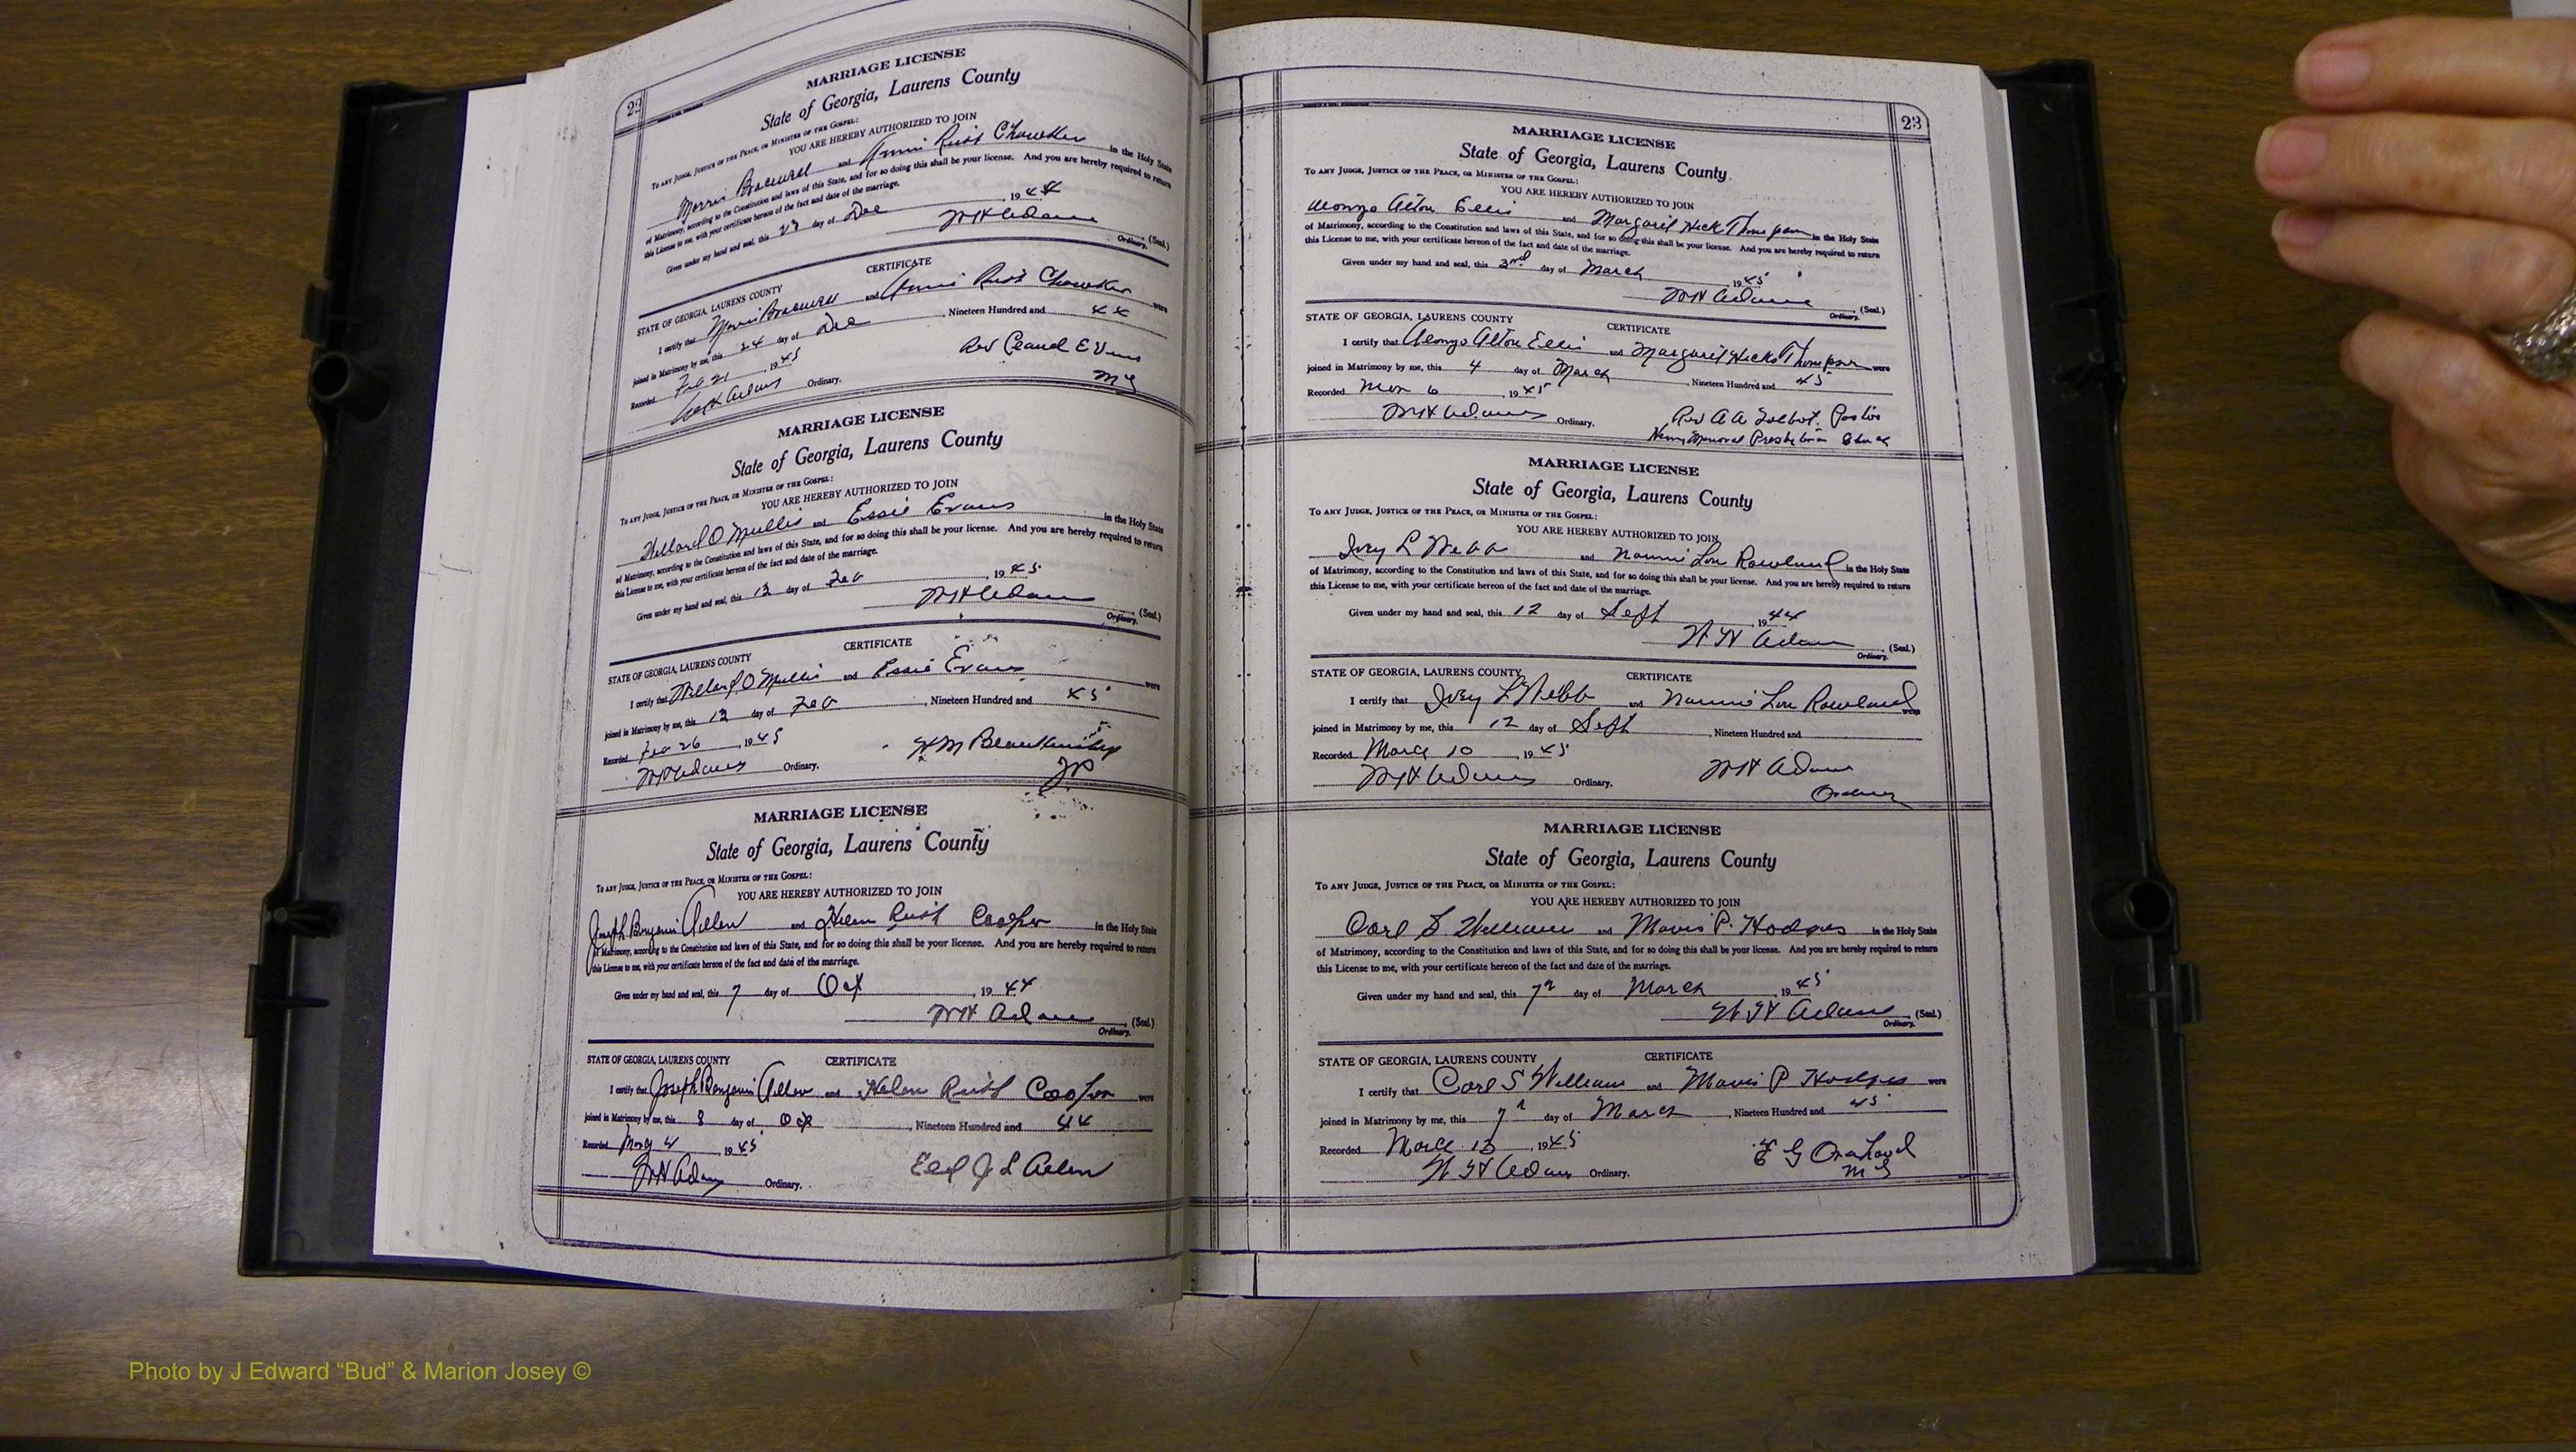 22
MARRIAGE LICENSE
State of Georgia, Laurens County
To any Judge, Justice of the Peace, or Minister of the Gospel:
YOU ARE HEREBY AUTHORIZED TO JOIN
Morris Bracewell and Annie Ruth in the Holy State
of Matrimony, according to the Constitution and laws of this State, and for so doing this shall be your license. And you are hereby required to return
this License to me, with your certificate hereon of the fact and date of the marriage.
Given under my hand and seal, this 23 day of Dec, 1944
W H Adams (Seal.)
Ordinary.
CERTIFICATE
STATE OF GEORGIA, LAURENS COUNTY
I certify that Morris Bracewell and Annie Ruth were
joined in Matrimony by me, this 24 day of Dec, Nineteen Hundred and 44
Recorded Feb 21, 1945
Rev Claud Evans
W H Adams Ordinary.
MG
MARRIAGE LICENSE
State of Georgia, Laurens County
To any Judge, Justice of the Peace, or Minister of the Gospel:
YOU ARE HEREBY AUTHORIZED TO JOIN
Willard O Mullis and Essie Evans in the Holy State
of Matrimony, according to the Constitution and laws of this State, and for so doing this shall be your license. And you are hereby required to return
this License to me, with your certificate hereon of the fact and date of the marriage.
Given under my hand and seal, this 13 day of Feb, 1945
W H Adams (Seal.)
Ordinary.
CERTIFICATE
STATE OF GEORGIA, LAURENS COUNTY
I certify that Willard O Mullis and Essie Evans were
joined in Matrimony by me, this 13 day of Feb, Nineteen Hundred and 45
Recorded Feb 26, 1945
W H Adams Ordinary.
JP
MARRIAGE LICENSE
State of Georgia, Laurens County
To any Judge, Justice of the Peace, or Minister of the Gospel:
YOU ARE HEREBY AUTHORIZED TO JOIN
Joseph Benjamin Allen and Helen Ruth Cooper in the Holy State
of Matrimony, according to the Constitution and laws of this State, and for so doing this shall be your license. And you are hereby required to return
this License to me, with your certificate hereon of the fact and date of the marriage.
Given under my hand and seal, this 7 day of Oct, 1944
W H Adams (Seal.)
Ordinary.
STATE OF GEORGIA, LAURENS COUNTY CERTIFICATE
I certify that Joseph Benjamin Allen and Helen Ruth Cooper were
joined in Matrimony by me, this 8 day of Oct, Nineteen Hundred and 44
Recorded 1945
W H Adams Ordinary.
Eld J L Allen
23
MARRIAGE LICENSE
State of Georgia, Laurens County
To any Judge, Justice of the Peace, or Minister of the Gospel:
YOU ARE HEREBY AUTHORIZED TO JOIN
Alonzo Alton Ellis and Margaret Hicks Thompson in the Holy State
of Matrimony, according to the Constitution and laws of this State, and for so doing this shall be your license. And you are hereby required to return
this License to me, with your certificate hereon of the fact and date of the marriage.
Given under my hand and seal, this 3rd day of March, 1945
W H Adams (Seal.)
Ordinary.
STATE OF GEORGIA, LAURENS COUNTY CERTIFICATE
I certify that Alonzo Alton Ellis and Margaret Hicks Thompson were
joined in Matrimony by me, this 4 day of March, Nineteen Hundred and 45
Recorded Mar 6, 1945
W H Adams Ordinary.
Rev A A Talbot. Pastor
Henry Memorial Presbyterian Church
MARRIAGE LICENSE
State of Georgia, Laurens County
To any Judge, Justice of the Peace, or Minister of the Gospel:
YOU ARE HEREBY AUTHORIZED TO JOIN
Ivey L Webb and Nannie Lou Rowland in the Holy State
of Matrimony, according to the Constitution and laws of this State, and for so doing this shall be your license. And you are hereby required to return
this License to me, with your certificate hereon of the fact and date of the marriage.
Given under my hand and seal, this 12 day of Sept, 1944
W H Adams (Seal.)
Ordinary.
STATE OF GEORGIA, LAURENS COUNTY CERTIFICATE
I certify that Ivey L Webb and Nannie Lou Rowland were
joined in Matrimony by me, this 12 day of Sept, Nineteen Hundred and
Recorded March 10, 1945
W H Adams Ordinary.
W H Adams
Ordinary
MARRIAGE LICENSE
State of Georgia, Laurens County
To any Judge, Justice of the Peace, or Minister of the Gospel:
YOU ARE HEREBY AUTHORIZED TO JOIN
Carl S Williams and Mavis P. Hodges in the Holy State
of Matrimony, according to the Constitution and laws of this State, and for so doing this shall be your license. And you are hereby required to return
this License to me, with your certificate hereon of the fact and date of the marriage.
Given under my hand and seal, this 7th day of March, 1945
W H Adams (Seal.)
Ordinary.
STATE OF GEORGIA, LAURENS COUNTY CERTIFICATE
I certify that Carl S Williams and Mavis P Hodges were
joined in Matrimony by me, this 7th day of March, Nineteen Hundred and 45
Recorded March 13, 1945
W H Adams Ordinary.
MG
Photo by J Edward “Bud” & Marion Josey ©